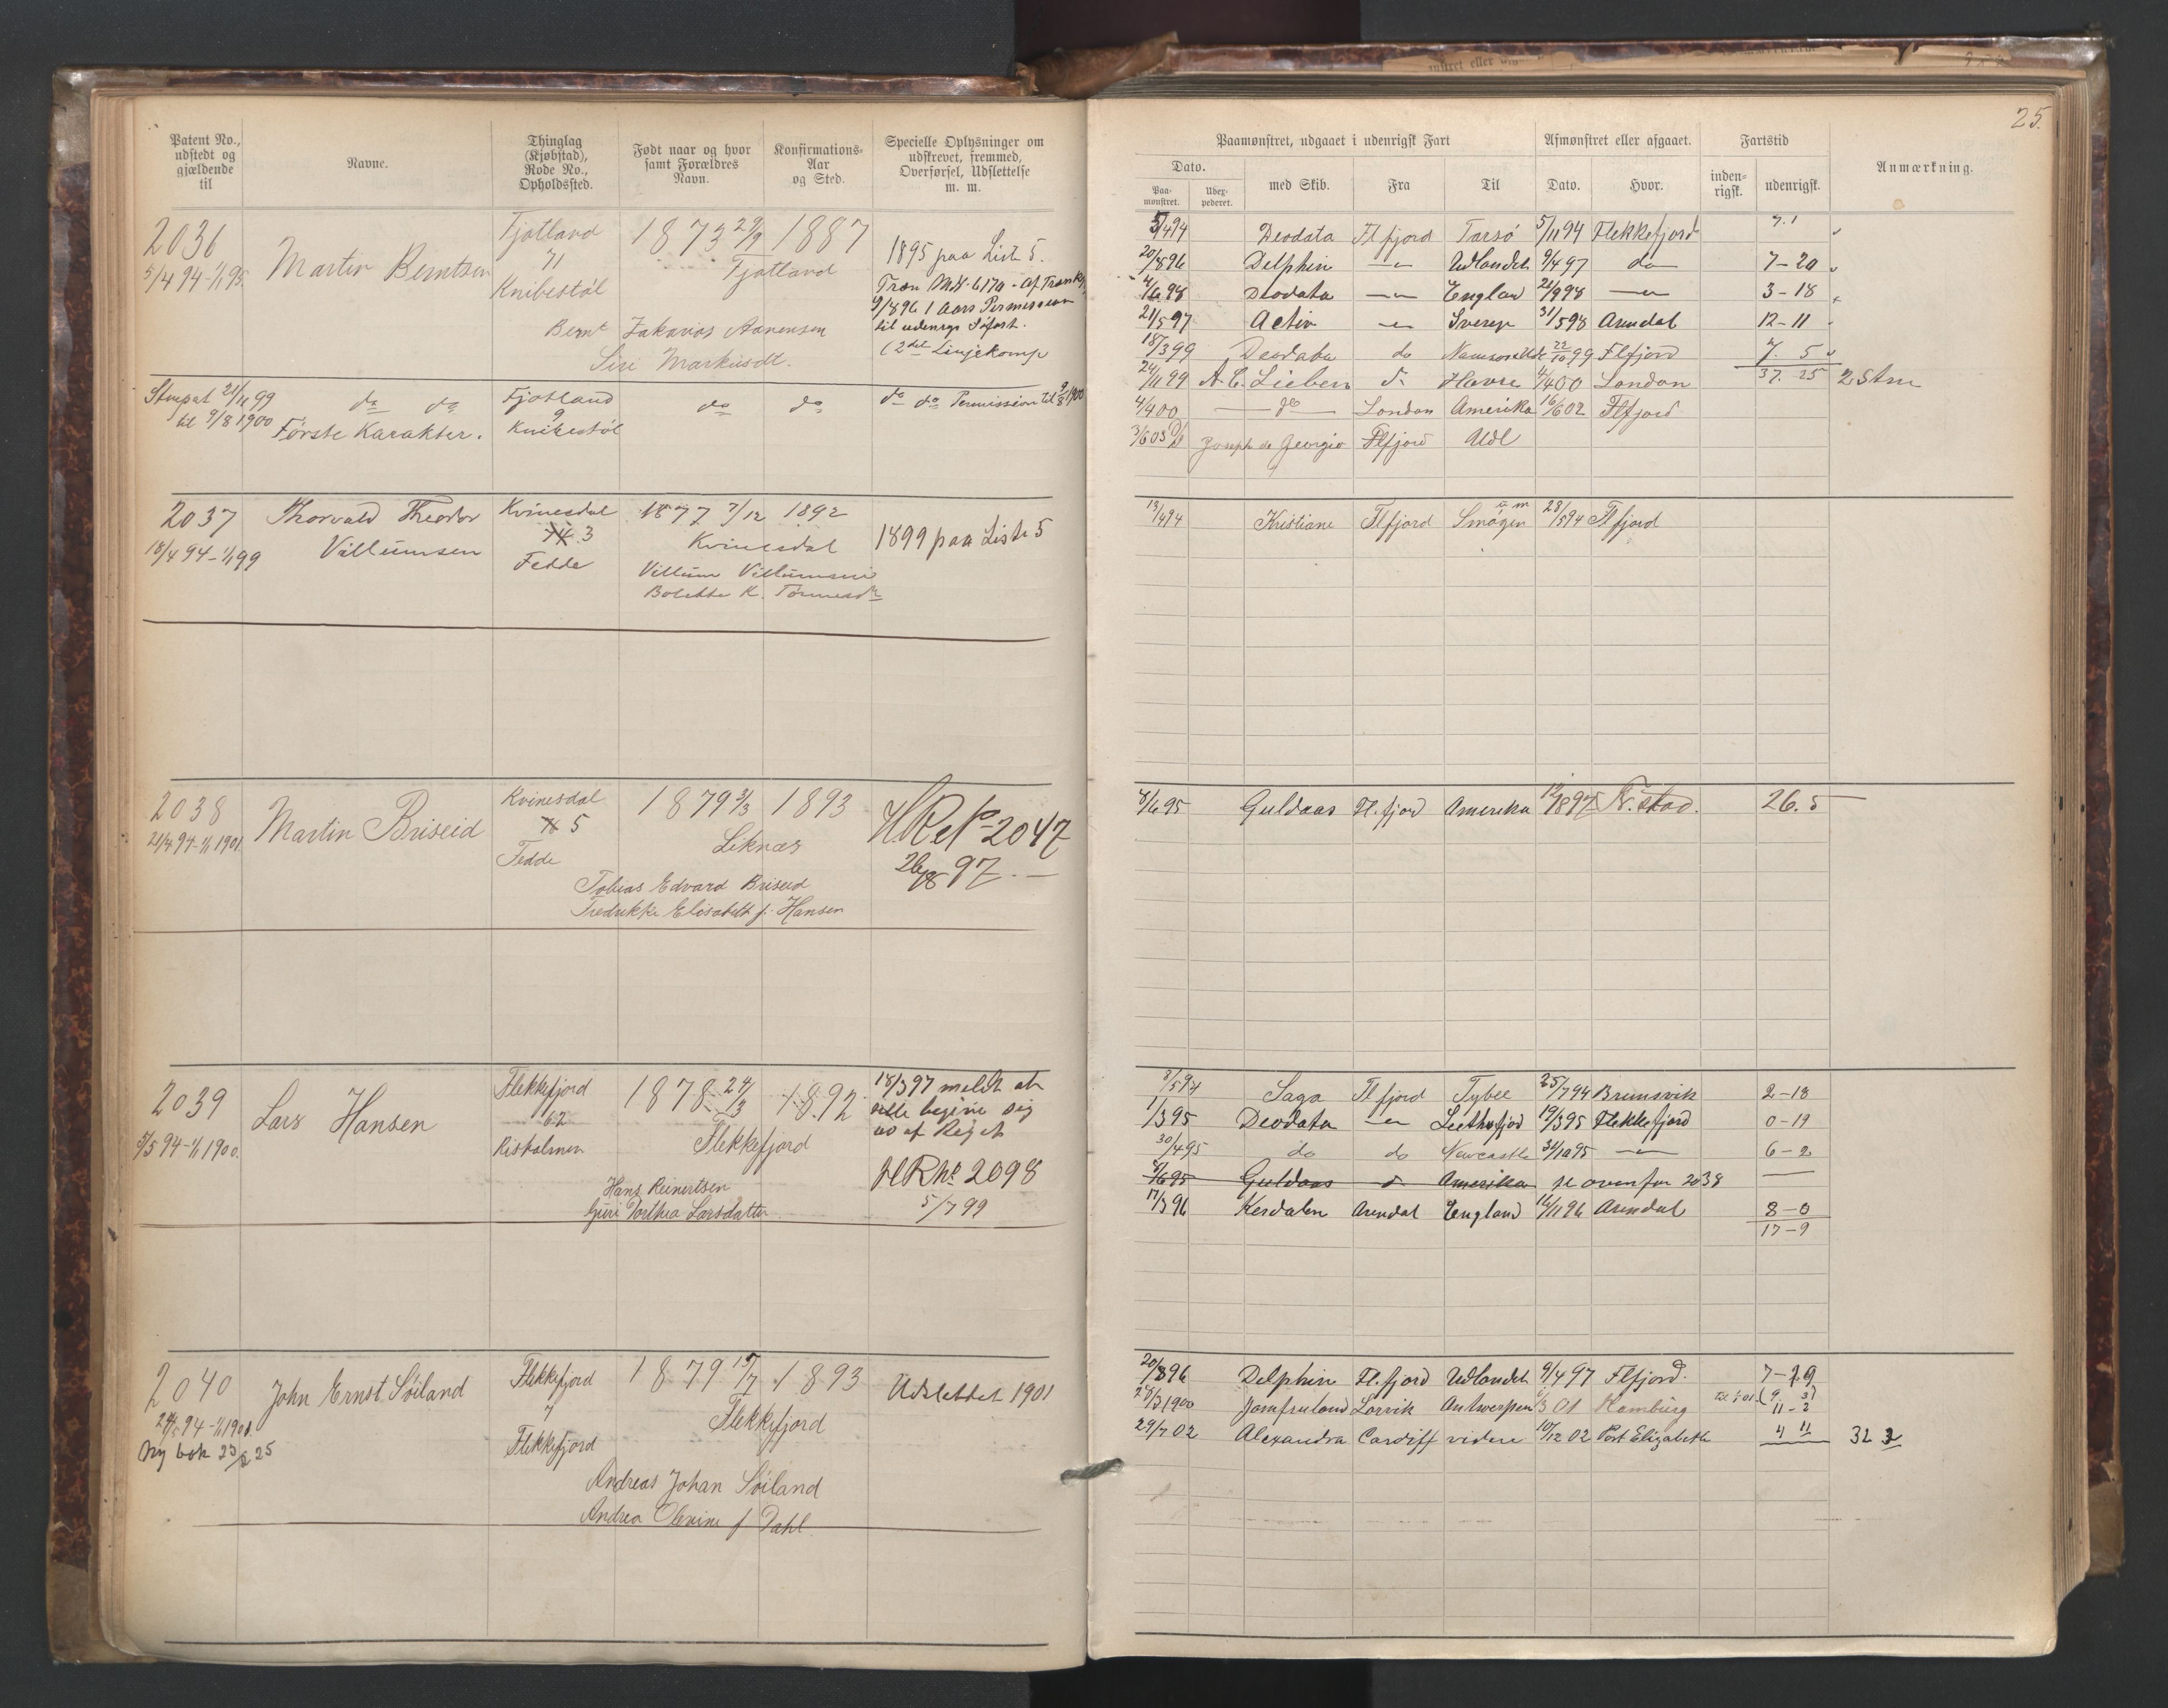 25.
Patent No., udstedt og gjældende til
Navne.
Thinglag (Kjøbstad), Rode No., Opholdssted.
Født naar og hvor samt Forældres Navn.
Konfirmations-Aar og Sted.
Specielle Oplysninger om udskrevet, fremmed, Overførsel, Udslettelse m. m.
Paamønstret, udgaaet i udenrigsk Fart
Afmønstret eller afgaaet.
Fartstid
Anmærkning.
Dato.
Paa-mønstret.
med Skib.
Fra
Til
Dato.
Hvor.
inden-rigsk.
udenrigsk.
2036
5/4 94 - 1/1 95
Martin Berntsen
Fjotland
71
Knibestøl
1873 29/9 1887
Fjotland
Bernt Zakarias Aanensen
Siri Markusdt.
1895 paa List 5.
9/8 96 1 Aars Permission
til udenrgs Søfart.
(2det Linjekomp
5/4 94 Deodata Flfjord Torsø 5/11 94 Flekkefjord 7.1
20/8 96 Delphin — Udlandet 9/4 97 do 7-20
4/6 98 Deodata — England 21/9 98 — 3-18
21/5 97 Activ — Sverge 31/5 98 Arendal 12-11
18/3 99 Deodata do 22/10 99 Flfjord 7. 5
24/11 99 A. C. Lieben do Havre 4/4 00 London 37. 25 2 Stm
4/4 00 do London Amerika 16/6 02 Flfjord
3/6 03 Joseph de Georgio Flfjord Udl
Stempet 21/11 99
til 9/8 1900
do do
Første Karakter.
Fjotland
9
Knibestøl
do do
do do Permission til 9/8 1900
2037
18/4 94 - 1/1 99
Thorvald Theodor
Villumsen
Kvinesdal
3
Fedde
1877 7/12 1892
Kvinesdal
Villum Villumsen
Bolette K. Tønnesdtr
1899 paa Liste 5
19/4 94 Kristiane Flfjord Smøgen 28/5 94 Flfjord
2038
21/4 94 - 1/1 1901
Martin Briseid
Kvinesdal
5
Fedde
1879 3/3 1893
Liknæs
Tobias Edvard Briseid
Fredrikke Elisabeth f. Hansen
H.R. No 2047
26/8 97. —
8/6 95 Guldaas Fl.fjord Amerika 12/8 97 Fr.stad. 26. 5
2039
5/5 94 - 1/1 1900.
Lars Hansen
Flekkefjord
62
Risholmen
1878 24/3 1892
Flekkefjord
Hans Reinertsen
Guri Dorthea Larsdatter
18/3 97 meldt at
ville begive sig
ud af Riget
HR No 2098
5/7 99
8/5 94 Saga Flfjord Tybee 25/7 94 Brunsvik 2-18
1/3 95 Deodata — Leithsfjord 19/3 95 Flekkefjord 0-19
30/4 95 do do Newcastle 31/10 95 — 6-2
8/6 95 Guldaas do Amerika se ovenfor 2038 —
17/3 96 Kesdalen Arendal England 16/11 96 Arendal 8-0
17-9
2040
24/5 94 - 1/1 1901.
Ny bok 23/2 25
John Ernst Søiland
Flekkefjord
7
Flekkefjord
1879 15/7 1893
Flekkefjord
Andreas Johan Søiland
Andrea Olevine f Dahl.
Udslettet 1901
20/8 96 Delphin Fl.fjord Udlandet 9/4 97 Flfjord. 7-19
28/3 1900 Jomfruland Larvik Antwerpen 01 Hamburg 11-2
29/7 02 Alexandra Cardiff videre 10/12 02 Port Elizabeth 4 11 32 3